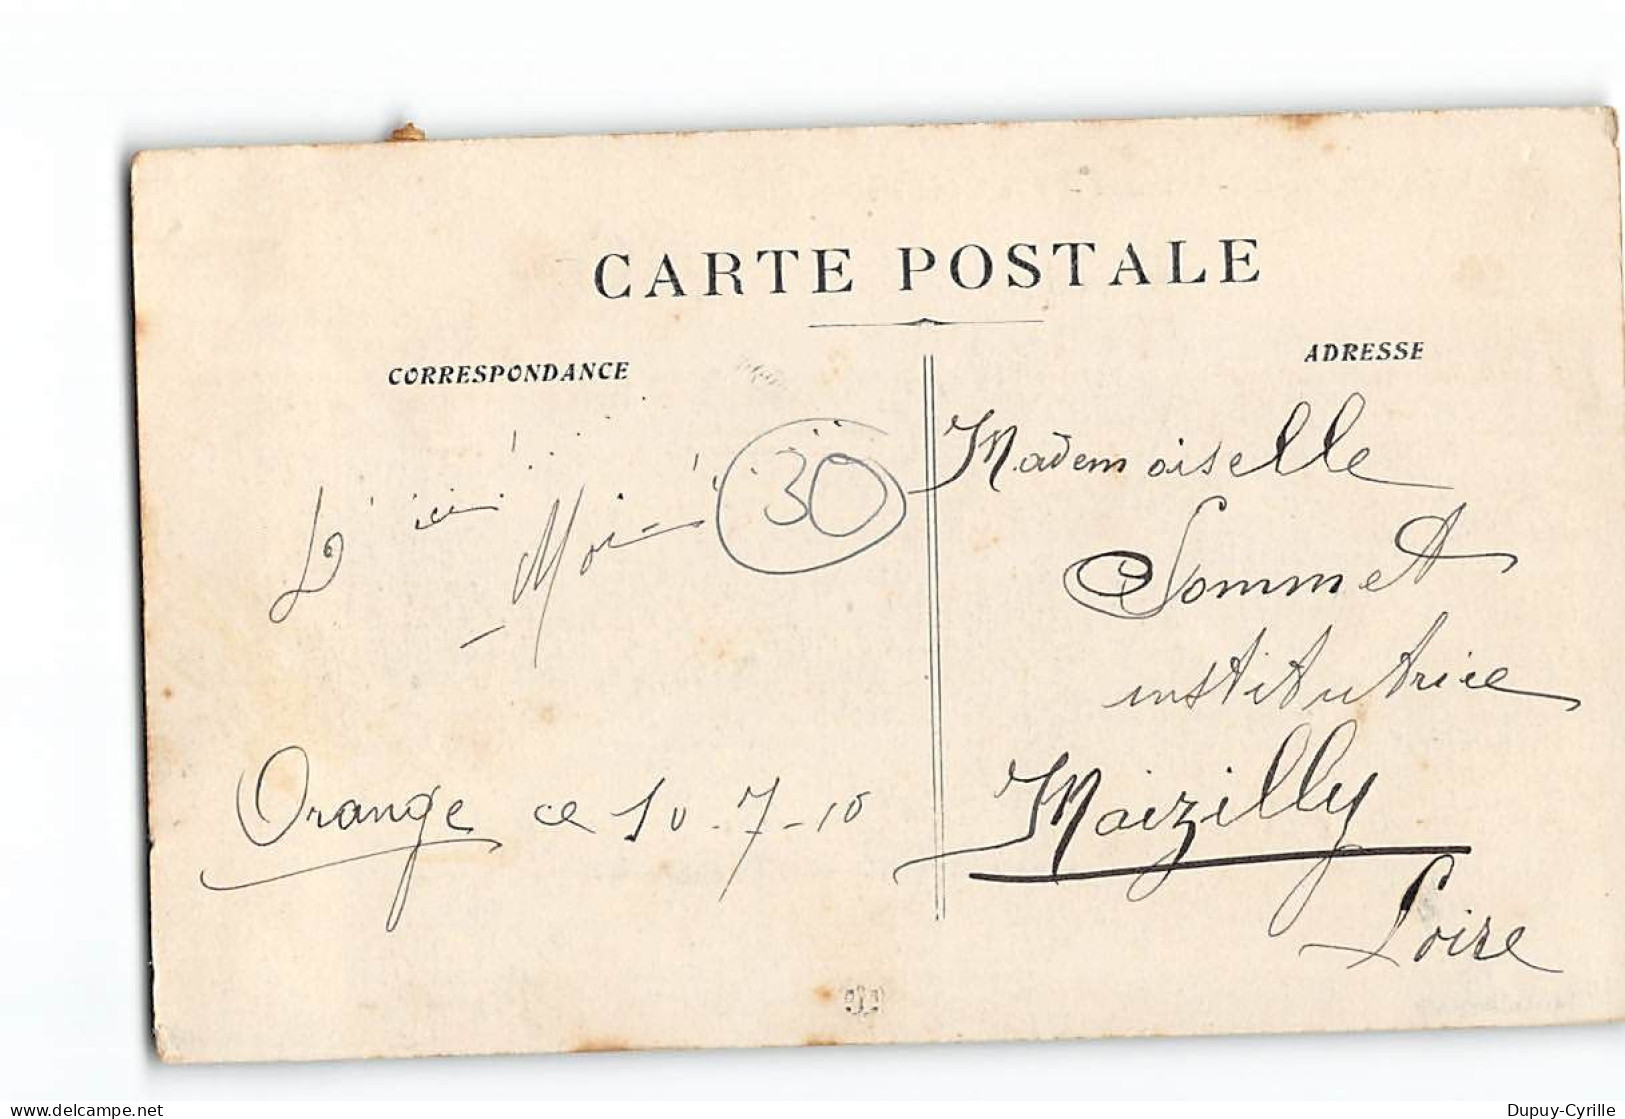 CARTE POSTALE
CORRESPONDANCE
ADRESSE
30
Orange ce 10-7-10
Mademoiselle
Sommet
institutrice
Maizilly
Loire
delcampe.net
Dupuy-Cyrille